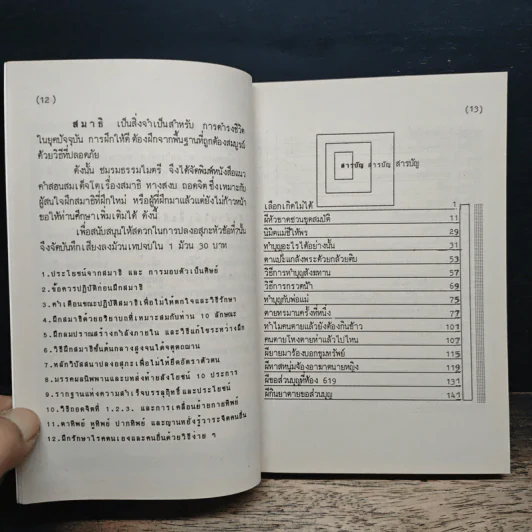 (12)
สมาธิ เป็นสิ่งจำเป็นสำหรับ การดำรงชีวิต
ในยุคปัจจุบัน การฝึกให้ดี ต้องฝึกจากพื้นฐานที่ถูกต้องสมบูรณ์
ด้วยวิธีที่ปลอดภัย
ดังนั้น ชมรมธรรมไมตรี จึงได้จัดพิมพ์หนังสือแนว
คำสอนสมเด็จโตเรื่องสมาธิ ทางสงบ ถอดจิต ซึ่งเหมาะกับ
ผู้สนใจฝึกสมาธิที่ฝึกใหม่ หรือผู้ที่ฝึกมาแล้วแต่ยังไม่ก้าวหน้า
ขอให้ท่านศึกษาเพิ่มเติมได้ ดังนี้
เพื่อสนับสนุนให้สดวกในการปลงอสุภะหัวข้อที่
จึงจัดบันทึกเสียงลงม้วนเทปจบใน 1 ม้วน 30 บาท
1.ประโยชน์จากสมาธิ และ การมอบตัวเป็นศิษย์
2.ข้อควรปฏิบัติก่อนฝึกสมาธิ
3.คำเตือนขณะปฏิบัติสมาธิเพื่อไม่ให้ตกใจและวิธีรักษา
4.ฝึกสมาธิด้วยอริยาบถที่เหมาะสมกับท่าน 10 ลักษณะ
5.ฝึกลมปราณสร้างกำลังภายใน และวิธีแก้ไขระหว่างฝึก
6.วิธีฝึกสมาธิขั้นต้นกลางสูงจนได้จตุตถฌาน
7.หลักวิปัสสนาปลงอสุภะเพื่อไม่ให้ยึดอัตราตัวตน
8.มรรคผลนิพพานและบทส่งท้ายสังโยชน์ 10 ประการ
9.รากฐานแห่งความสำเร็จบรรลุฤทธิ์และประโยชน์
10.วิธีถอดจิตที่ 1.2.3. และการเคลื่อนย้ายกายทิพย์
11.ตาทิพย์ หูทิพย์ ปากทิพย์ และญาณหยั่งรู้วาระจิตคนอื่น
12.ฝึกรักษาโรคตนเองและคนอื่นด้วยวิธีง่าย ๆ
(13)
สารบัญ สารบัญ สารบัญ
เลือกเกิดไม่ได้ 1
ผีหัวขาดชวนขุดสมบัติ 11
นิมิตแม่ชีให้พร 29
ทำบุญอะไรได้อย่างนั้น 31
ตาแป๊ะแกล้งพระด้วยกล้วยดิบ 53
วิธีการทำบุญสังฆทาน 57
วิธีการกรวดน้ำ 69
ทำบุญกับพ่อแม่ 75
ตายทรมานครั้งที่หนึ่ง 77
ทำไมคนตายแล้วยังต้องกินข้าว 101
คนตายโหงตายห่าแล้วไปไหน 107
ผียายมาร้องบอกขุมทรัพย์ 115
ผีทาสหนุ่มจ้องอาฆาตนายหญิง 119
ผีขอส่วนบุญที่ห้อง 619 131
ผีกินยาตายขอส่วนบุญ 141